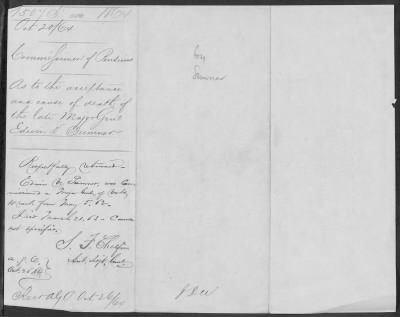 Oct 20/64
Commissioner of Pensions
As to the acceptance
and cause of death, of
the late Major Genl
Edwin V. Sumner
Respectfully returned
Edwin V. Sumner, was Com
missioned a Major Genl of Vols,
to rank from May 5, 62
Died March 21, 63 - Cause
not specified.
Asst. Adjt. Genl
A. G. O.
Recd A.G.O. Oct 26/64
Sumner